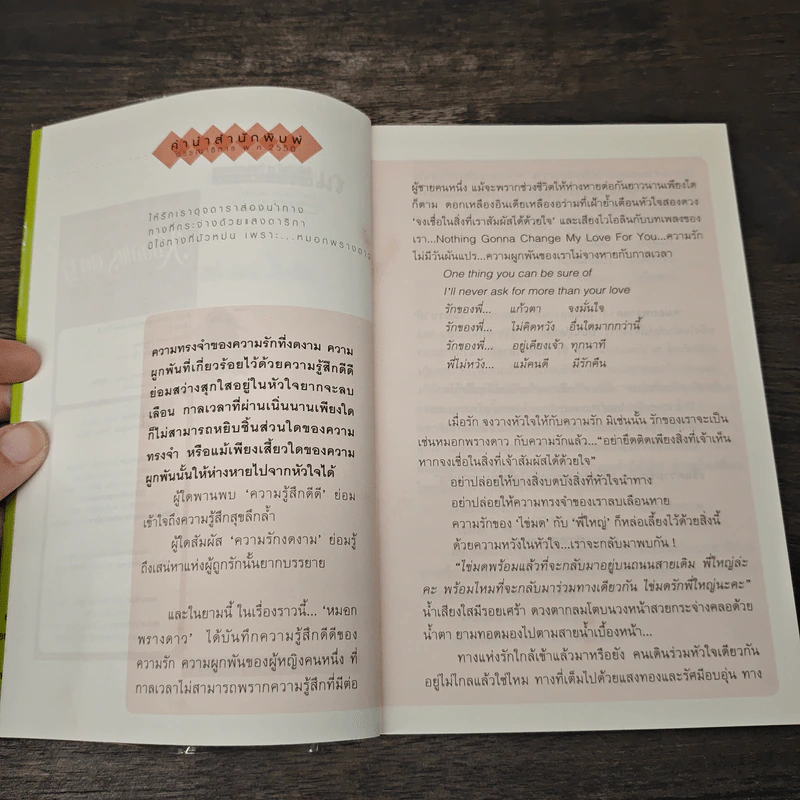 คำนำสำนักพิมพ์
บรรณาธิการ พ.ศ. 2550
ให้รักเราดุจดาราส่องนำทาง
ทางที่กระจ่างด้วยแสงดาริกา
มิใช่ทางที่มัวหม่น เพราะ...หมอกพรางดาว
ความทรงจำของความรักที่งดงาม ความ
ผูกพันที่เกี่ยวร้อยไว้ด้วยความรู้สึกดีดี
ย่อมสว่างสุกใสอยู่ในหัวใจยากจะลบ
เลือน กาลเวลาที่ผ่านเนิ่นนานเพียงใด
ก็ไม่สามารถหยิบชิ้นส่วนใดของความ
ทรงจำ หรือแม้เพียงเสี้ยวใดของความ
ผูกพันนั้นให้ห่างหายไปจากหัวใจได้
ผู้ใดพานพบ ‘ความรู้สึกดีดี’ ย่อม
เข้าใจถึงความรู้สึกสุขลึกล้ำ
ผู้ใดสัมผัส ‘ความรักงดงาม’ ย่อมรู้
ถึงเสน่หาแห่งผู้ถูกรักนั้นยากบรรยาย
และในยามนี้ ในเรื่องราวนี้... ‘หมอก
พรางดาว’ ได้บันทึกความรู้สึกดีดีของ
ความรัก ความผูกพันของผู้หญิงคนหนึ่ง ที่
กาลเวลาไม่สามารถพรากความรู้สึกที่มีต่อ
ผู้ชายคนหนึ่ง แม้จะพรากช่วงชีวิตให้ห่างหายต่อกันยาวนานเพียงใด
ก็ตาม ดอกเหลืองอินเดียเหลืองอร่ามที่เฝ้าย้ำเตือนหัวใจสองดวง
‘จงเชื่อในสิ่งที่เราสัมผัสได้ด้วยใจ’ และเสียงไวโอลินกับบทเพลงของ
เรา...Nothing Gonna Change My Love For You...ความรัก
ไม่มีวันผันแปร...ความผูกพันของเราไม่จางหายกับกาลเวลา
One thing you can be sure of
I’ll never ask for more than your love
รักของพี่... แก้วตา จงมั่นใจ
รักของพี่... ไม่คิดหวัง อื่นใดมากกว่านี้
รักของพี่... อยู่เคียงเจ้า ทุกนาที
พี่ไม่หวัง... แม้คนดี มีรักคืน
เมื่อรัก จงวางหัวใจให้กับความรัก มิเช่นนั้น รักของเราจะเป็น
เช่นหมอกพรางดาว กับความรักแล้ว...“อย่ายึดติดเพียงสิ่งที่เจ้าเห็น
หากจงเชื่อในสิ่งที่เจ้าสัมผัสได้ด้วยใจ”
อย่าปล่อยให้บางสิ่งบดบังสิ่งที่หัวใจนำทาง
อย่าปล่อยให้ความทรงจำของเราลบเลือนหาย
ความรักของ ‘ไข่มด’ กับ ‘พี่ใหญ่’ ก็หล่อเลี้ยงไว้ด้วยสิ่งนี้
ด้วยความหวังในหัวใจ...เราจะกลับมาพบกัน !
“ไข่มดพร้อมแล้วที่จะกลับมาอยู่บนถนนสายเดิม พี่ใหญ่ล่ะ
คะ พร้อมไหมที่จะกลับมาร่วมทางเดียวกัน ไข่มดรักพี่ใหญ่นะคะ”
น้ำเสียงใสมีรอยเศร้า ดวงตากลมโตบนวงหน้าสวยกระจ่างคลอด้วย
น้ำตา ยามทอดมองไปตามสายน้ำเบื้องหน้า...
ทางแห่งรักใกล้เข้าแล้วมาหรือยัง คนเดินร่วมหัวใจเดียวกัน
อยู่ไม่ไกลแล้วใช่ไหม ทางที่เต็มไปด้วยแสงทองและรัศมีอบอุ่น ทาง